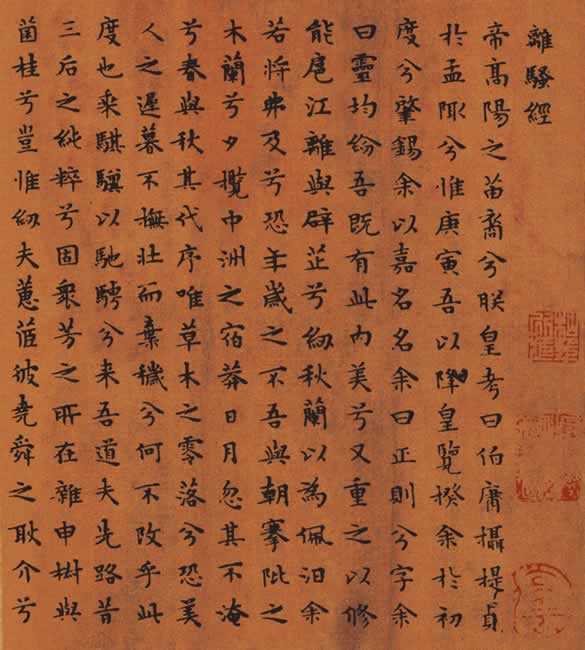 離騷經
帝高陽之苗裔兮朕皇考曰伯庸攝提貞
於孟陬兮惟庚寅吾以降皇覽揆余於初
度兮肇錫余以嘉名名余曰正則兮字余
曰靈均紛吾既有此内美兮又重之以修
能扈江離與辟芷兮紉秋蘭以為佩汨余
若將弗及兮恐年歲之不吾與朝搴阰之
木蘭兮夕攬中洲之宿莽日月忽其不淹
兮春與秋其代序唯草木之零落兮恐美
人之遲暮不撫壯而棄穢兮何不改乎此
度也乘騏驥以馳騁兮来吾道夫先路昔
三后之純粹兮固衆芳之所在雜申樹與
菌桂兮豈惟紉夫蕙茝彼堯舜之耿介兮